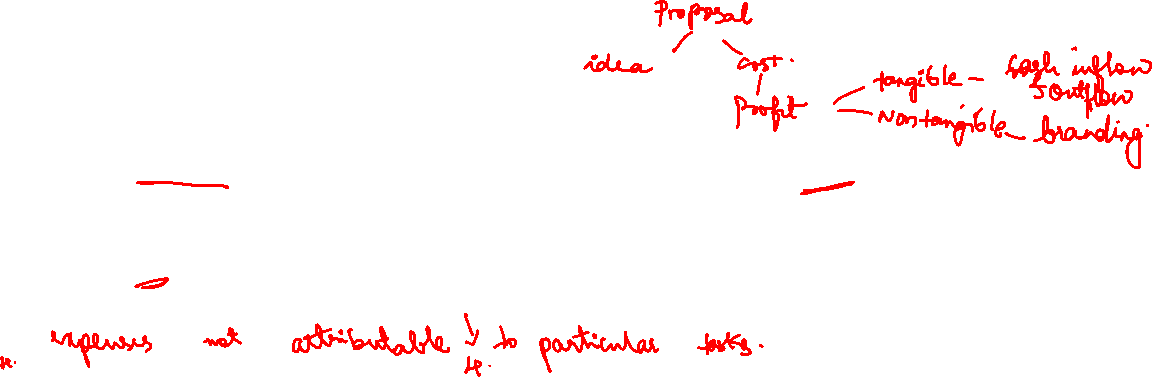 Proposal
idea
cost.
Profit
tangible - cash inflow
& outflow
Nontangible - branding
expenses not attributable to particular tasks.